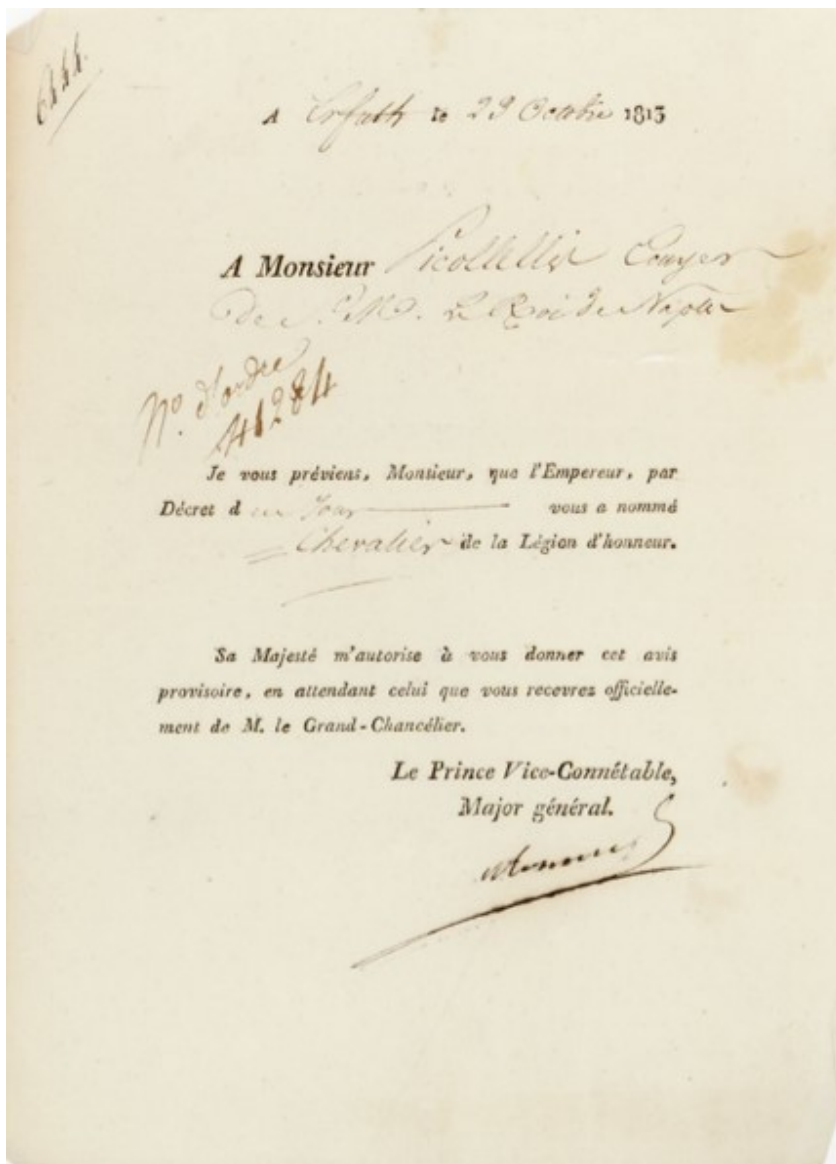 6444.
A Erfurth le 23 Octobre 1813
A Monsieur Picolellis Ecuyer
de S. M. Le Roi de Naples
No. d'ordre
41284
Je vous préviens, Monsieur, que l'Empereur, par
Décret d u Jour vous a nommé
Chevalier de la Légion d'honneur.
Sa Majesté m'autorise à vous donner cet avis
provisoire, en attendant celui que vous recevrez officielle-
ment de M. le Grand-Chancélier.
Le Prince Vice-Connétable,
Major général.